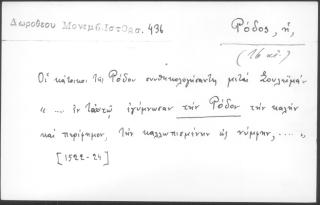 Δωροθέου Μονεμβ. Ιστορ. 436
Ρόδος, ἡ,
(16 αἰ.)
Οἱ κάτοικοι τῆς Ρόδου συνθηκολογήσαντες μετὰ Σουλεϊμὰν
«... ἐγύμνωσαν τὴν Ρόδον τὴν καλὴν
καὶ περίφημον, τὴν καλλωπισμένην ὡς νύμφην, .... »
[1522-24]